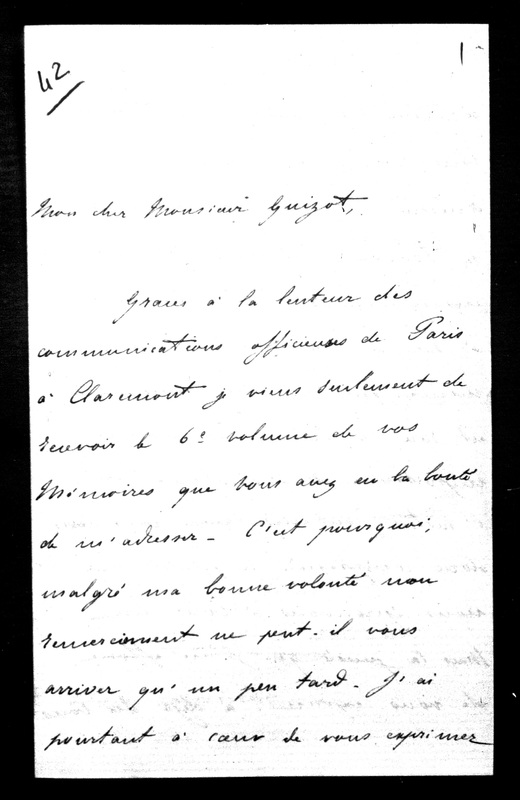 42
1
Mon cher Monsieur Guizot,
Graces à la lenteur des
communications officieuses de Paris
à Claremont je viens seulement de
recevoir le 6e volume de vos
Mémoires que vous avez eu la bonté
de m'adresser - C'est pourquoi,
malgré ma bonne volonté mon
remerciement ne peut-il vous
arriver qu'un peu tard - J'ai
pourtant à cœur de vous exprimer